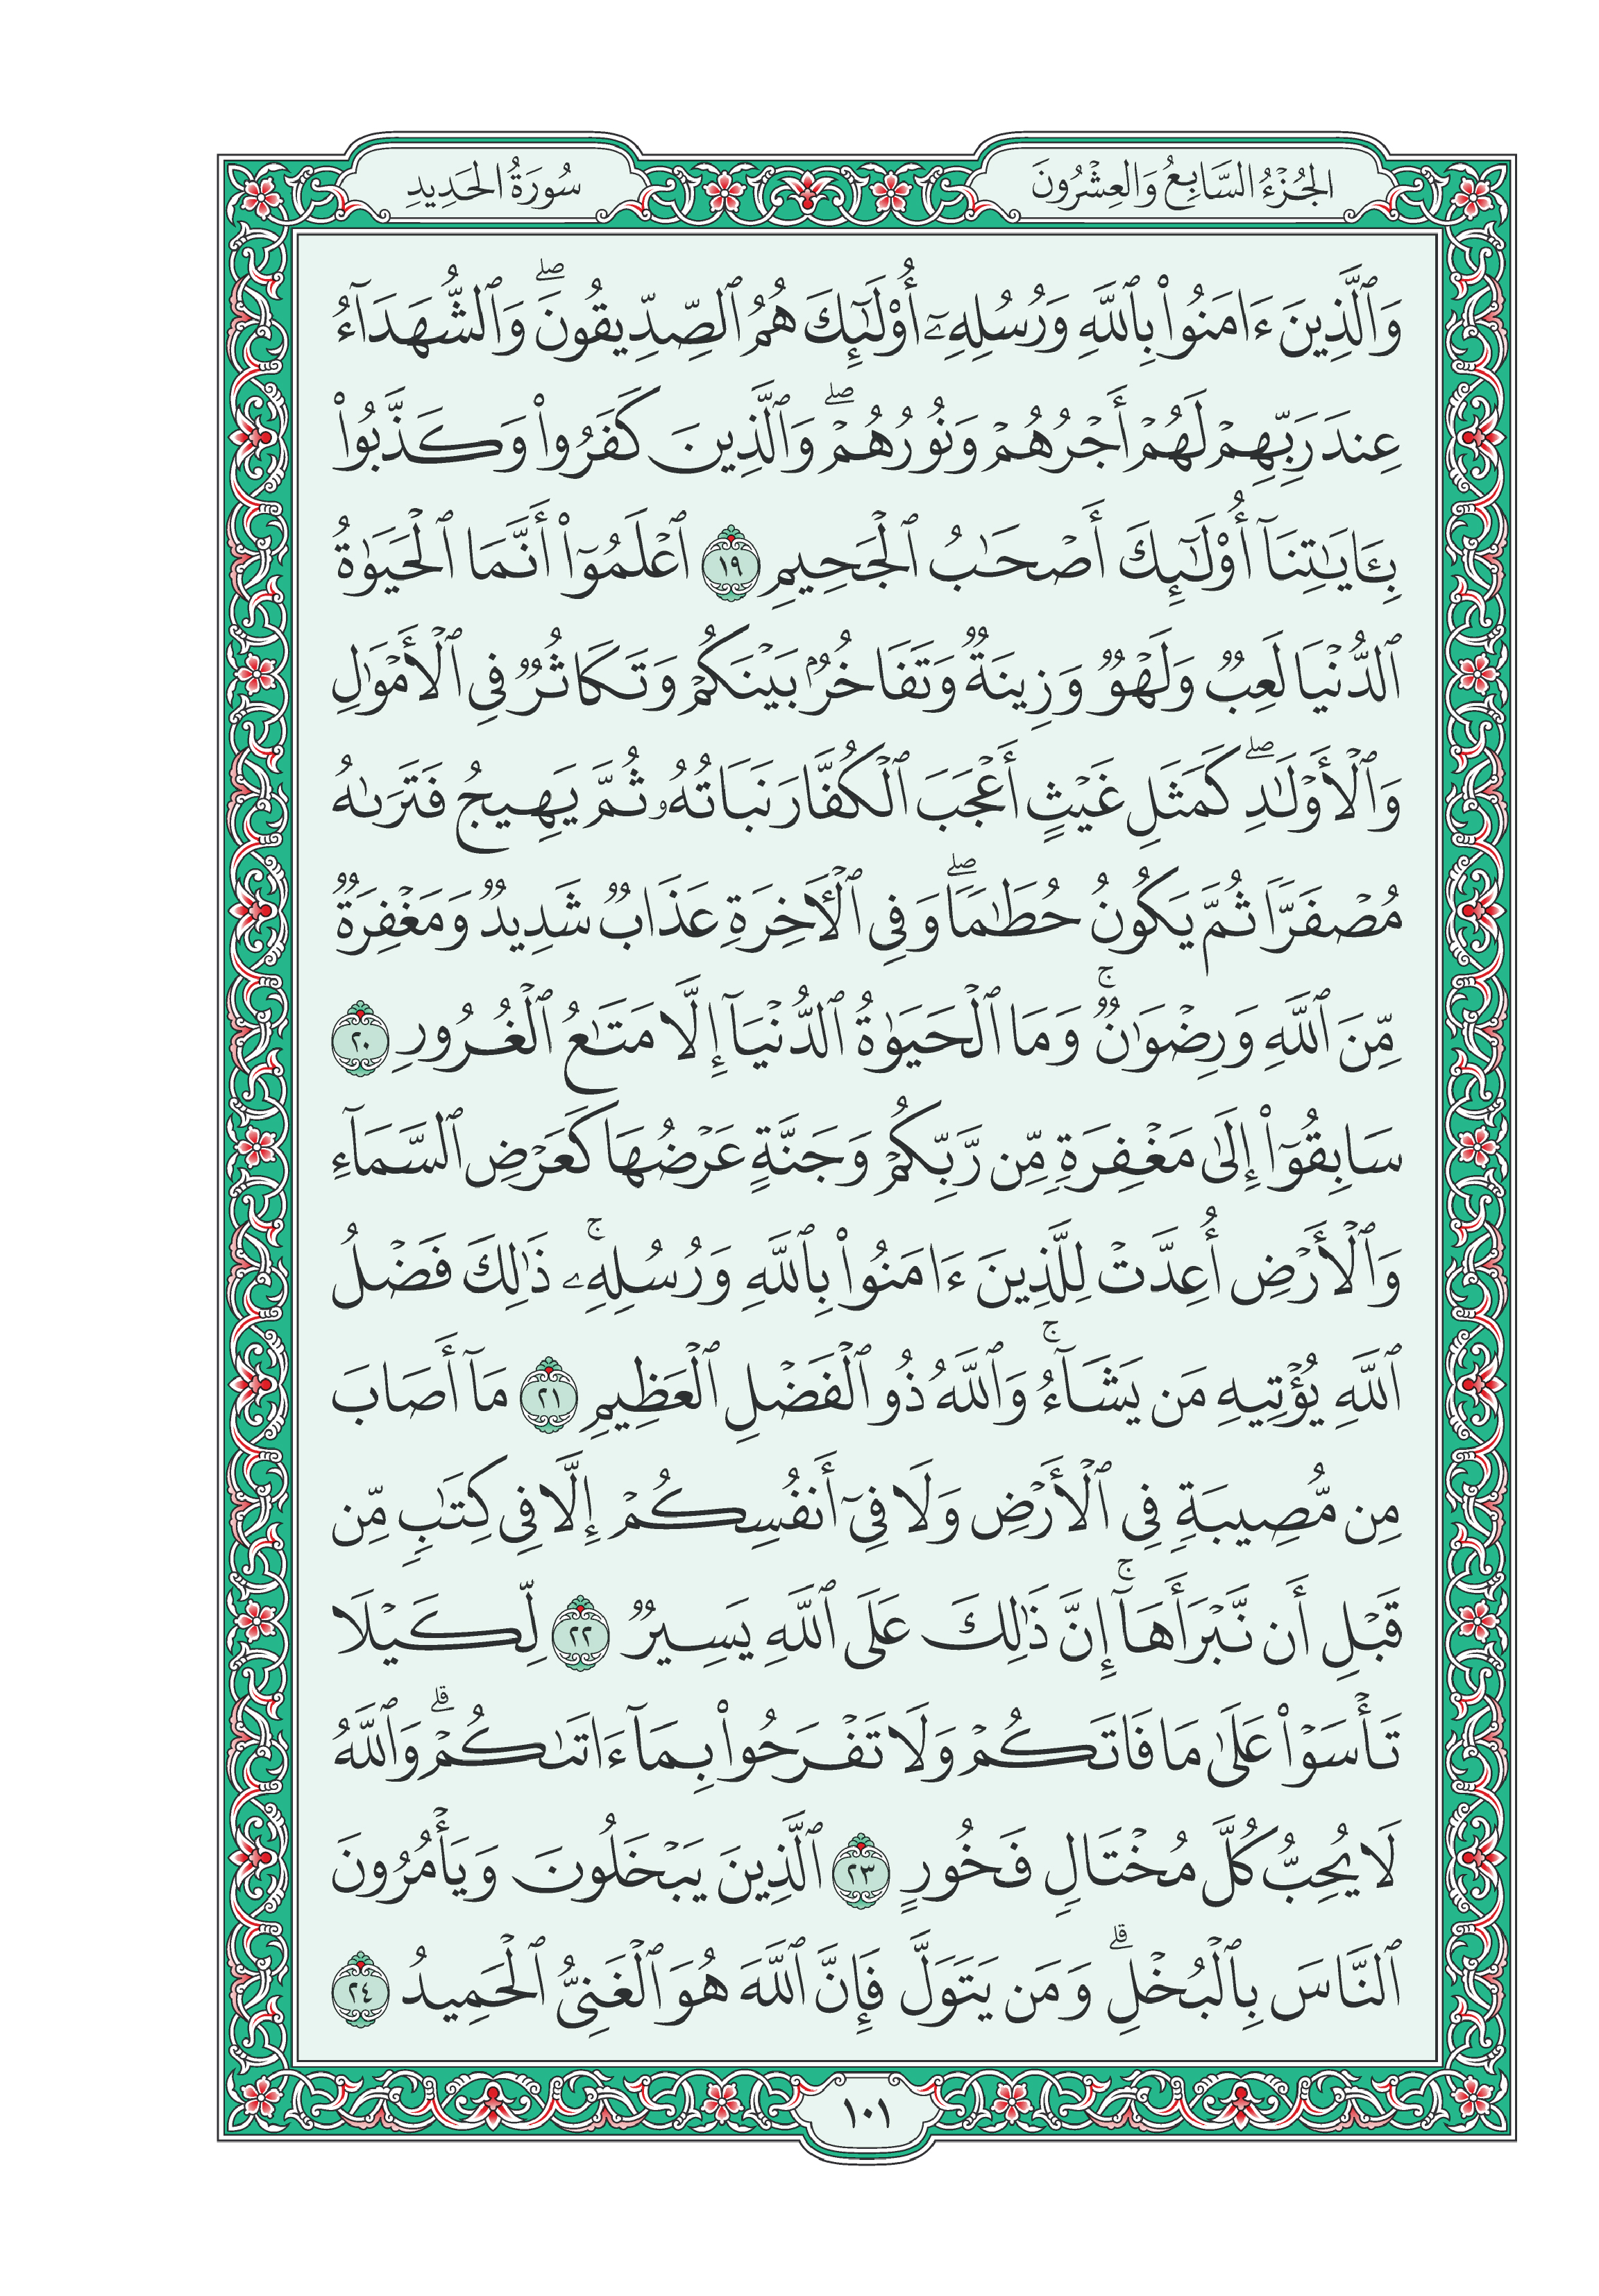 الجُزْءُ السَّابِعُ وَالعِشْرُونَ
سُورَةُ الحَدِيدِ
وَٱلَّذِينَ ءَامَنُواْ بِٱللَّهِ وَرُسُلِهِۦٓ أُوْلَٰٓئِكَ هُمُ ٱلصِّدِّيقُونَۖ وَٱلشُّهَدَآءُ
عِندَ رَبِّهِمْ لَهُمْ أَجْرُهُمْ وَنُورُهُمْۖ وَٱلَّذِينَ كَفَرُواْ وَكَذَّبُواْ
بِـَٔايَٰتِنَآ أُوْلَٰٓئِكَ أَصْحَٰبُ ٱلْجَحِيمِ ١٩ ٱعْلَمُوٓاْ أَنَّمَا ٱلْحَيَوٰةُ
ٱلدُّنْيَا لَعِبٌ وَلَهْوٌ وَزِينَةٌ وَتَفَاخُرٌۢ بَيْنَكُمْ وَتَكَاثُرٌ فِي ٱلْأَمْوَٰلِ
وَٱلْأَوْلَٰدِۖ كَمَثَلِ غَيْثٍ أَعْجَبَ ٱلْكُفَّارَ نَبَاتُهُۥ ثُمَّ يَهِيجُ فَتَرَىٰهُ
مُصْفَرًّا ثُمَّ يَكُونُ حُطَٰمًاۖ وَفِي ٱلْأٓخِرَةِ عَذَابٌ شَدِيدٌ وَمَغْفِرَةٌ
مِّنَ ٱللَّهِ وَرِضْوَٰنٌۚ وَمَا ٱلْحَيَوٰةُ ٱلدُّنْيَآ إِلَّا مَتَٰعُ ٱلْغُرُورِ ٢٠
سَابِقُوٓاْ إِلَىٰ مَغْفِرَةٍ مِّن رَّبِّكُمْ وَجَنَّةٍ عَرْضُهَا كَعَرْضِ ٱلسَّمَآءِ
وَٱلْأَرْضِ أُعِدَّتْ لِلَّذِينَ ءَامَنُواْ بِٱللَّهِ وَرُسُلِهِۦۚ ذَٰلِكَ فَضْلُ
ٱللَّهِ يُؤْتِيهِ مَن يَشَآءُۚ وَٱللَّهُ ذُو ٱلْفَضْلِ ٱلْعَظِيمِ ٢١ مَآ أَصَابَ
مِن مُّصِيبَةٍ فِي ٱلْأَرْضِ وَلَا فِيٓ أَنفُسِكُمْ إِلَّا فِي كِتَٰبٍ مِّن
قَبْلِ أَن نَّبْرَأَهَآۚ إِنَّ ذَٰلِكَ عَلَى ٱللَّهِ يَسِيرٌ ٢٢ لِّكَيْلَا
تَأْسَوْاْ عَلَىٰ مَا فَاتَكُمْ وَلَا تَفْرَحُواْ بِمَآ ءَاتَىٰكُمْۗ وَٱللَّهُ
لَا يُحِبُّ كُلَّ مُخْتَالٍ فَخُورٍ ٢٣ ٱلَّذِينَ يَبْخَلُونَ وَيَأْمُرُونَ
ٱلنَّاسَ بِٱلْبُخْلِۗ وَمَن يَتَوَلَّ فَإِنَّ ٱللَّهَ هُوَ ٱلْغَنِيُّ ٱلْحَمِيدُ ٢٤
١٠١